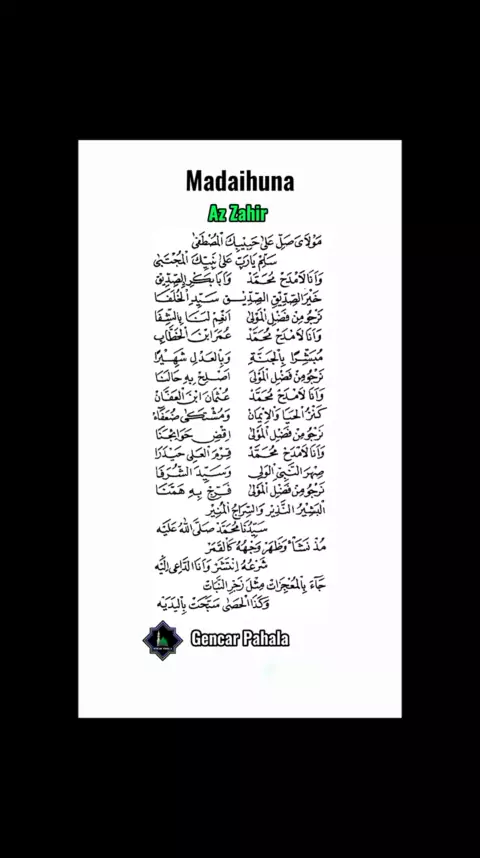 Madaihuna
Az Zahir
مَوْلَايَ صَلِّ عَلَى حَبِيْبِكَ الْمُصْطَفَى
سَلِّمْ يَارَبِّ عَلَى نَبِيِّكَ الْمُجْتَبَى
وَاَنَا لَامْدَحْ مُحَمَّدْ وَاَبَا بَكْرِ الصِّدِّيْقِ
خَيْرَ الصِّدِّيْقِ الصِّدِّيْقِ سَيِّدِ الْخُلَفَا
نَرْجُوْ مِنْ فَضْلِ الْمَوْلَى اَنْعِمْ لَنَا بِالشِّفَا
وَاَنَا لَامْدَحْ مُحَمَّدْ عُمَرَ ابْنَ الْخَطَّابِ
مُبَشَّرًا بِالْجَنَّةِ وَبِالْعَدْلِ شَهِيْرًا
نَرْجُوْ مِنْ فَضْلِ الْمَوْلَى اَصْلِحْ بِهِ حَالَنَا
وَاَنَا لَامْدَحْ مُحَمَّدْ عُثْمَانَ ابْنَ الْعَفَّانْ
كَنْزُ الْحَيَا وَالْاِيْمَانِ وَمُشْتَكَى ضُعَفَاءْ
نَرْجُوْ مِنْ فَضْلِ الْمَوْلَى اِقْضِ حَوَائِجَنَا
وَاَنَا لَامْدَحْ مُحَمَّدْ قَرْمَ الْعَلِى حَيْدَرَا
صِهْرَ النَّبِيِّ الْوَلِى وَسَيِّدَ الشُّرَفَا
نَرْجُوْ مِنْ فَضْلِ الْمَوْلَى فَرِّجْ بِهِ هَمَّنَا
الْبَشِيْرُ النَّذِيْرُ وَالسِّرَاجُ الْمُنِيْرُ
سَيِّدُنَا مُحَمَّدْ صَلَّى اللهُ عَلَيْهِ
مُذْ نَشَأْ وَظَهَرْ وَجْهُهُ كَالْقَمَرْ
شَرْعُهُ اِنْتَشَرْ وَاَنَا الدَّاعِى اِلَيْهِ
جَآءَ بِالْمُعْجِزَاتْ مِثْلَ زَخِرِ النَّبَاتْ
وَكَذَا الْحَصَى سَبَّحَتْ بِالْيَدَيْهِ
Gencar Pahala